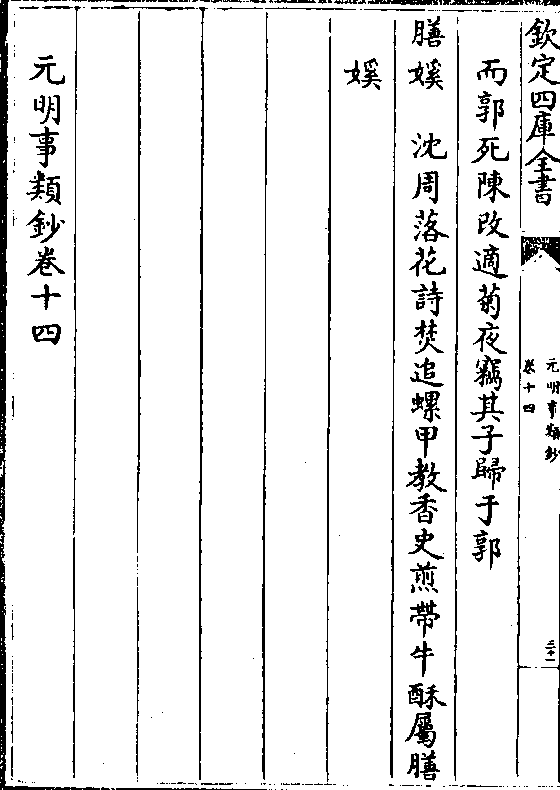 欽定四庫全書
元明事類鈔
卷十四
二十一
而郭死陳改適菊夜竊其子歸于郭
膳媄 沈周落花詩焚追螺甲教香史煎帶牛酥屬膳
媄
元明事類鈔卷十四